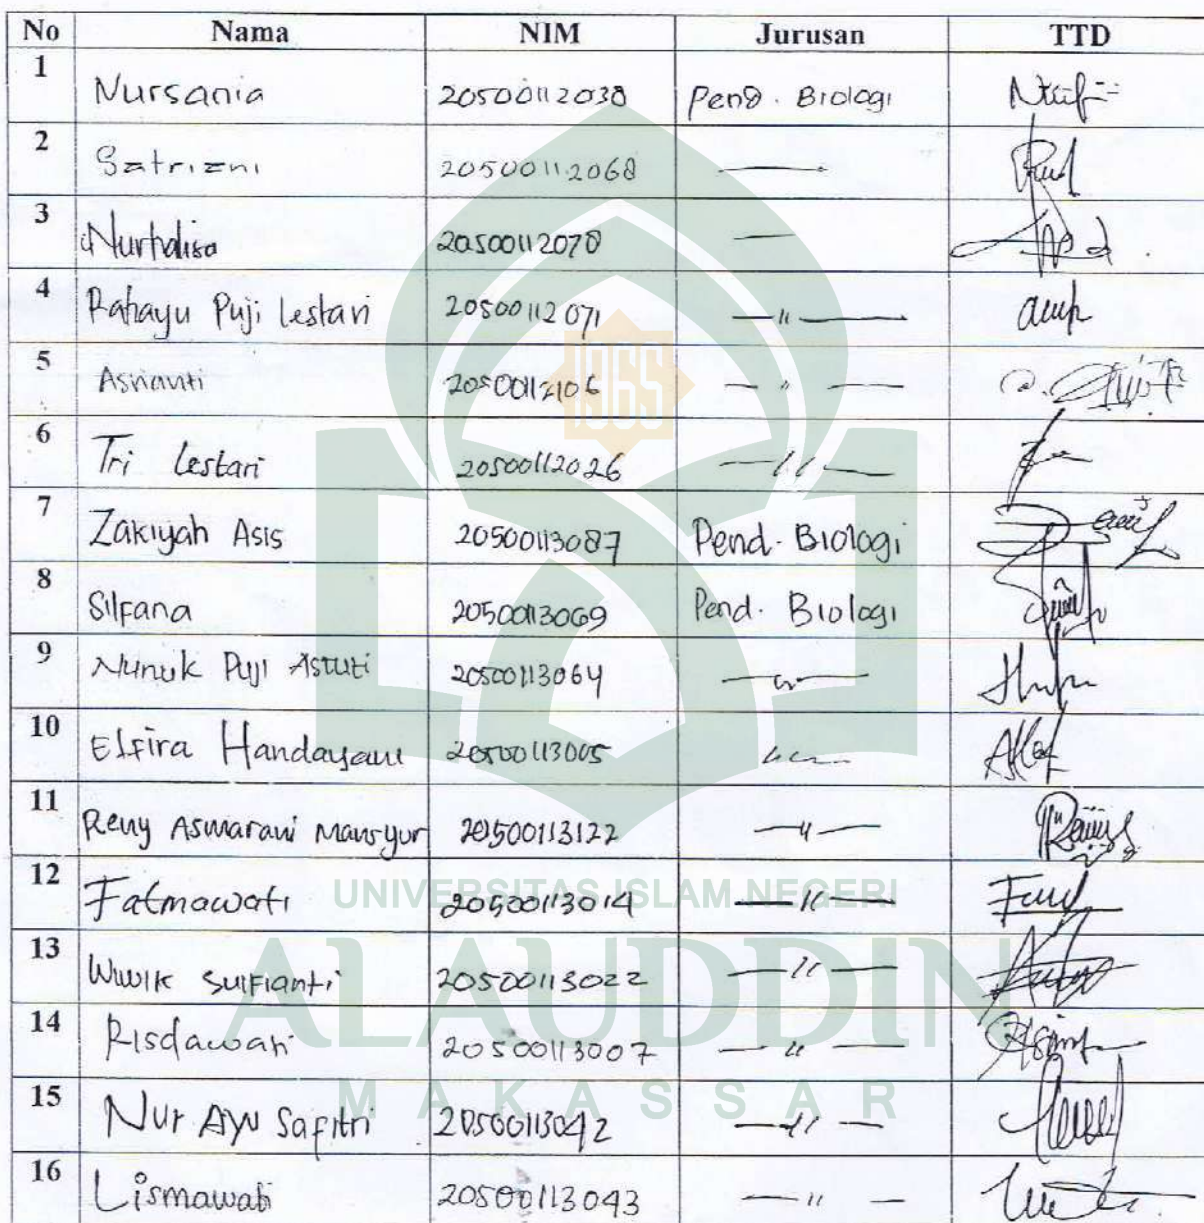 No Nama NIM Jurusan TTD
1 Nursania 20500112038 Pend. Biologi
2 Satriani 20500112068 ——
3 Nurhalisa 20500112078 —
4 Rahayu Puji Lestari 20500112071 — " —
5 Asrianti 20500112106 — " —
6 Tri Lestari 20500112026 — " —
7 Zakiyah Asis 20500113087 Pend. Biologi
8 Silfana 20500113069 Pend. Biologi
9 Nunuk Puji Astuti 20500113064 — " —
10 Elfira Handayani 20500113005 — " —
11 Reny Asmarani Mansyur 201500113122 — " —
12 Fatmawati 20500113014 — " —
13 Wiwik Sulfianti 20500113022 — " —
14 Risdawati 20500113007 — " —
15 Nur Ayu Safitri 20500113042 — " —
16 Lismawati 20500113043 — " —
1965
UNIVERSITAS ISLAM NEGERI
ALAUDDIN
MAKASSAR